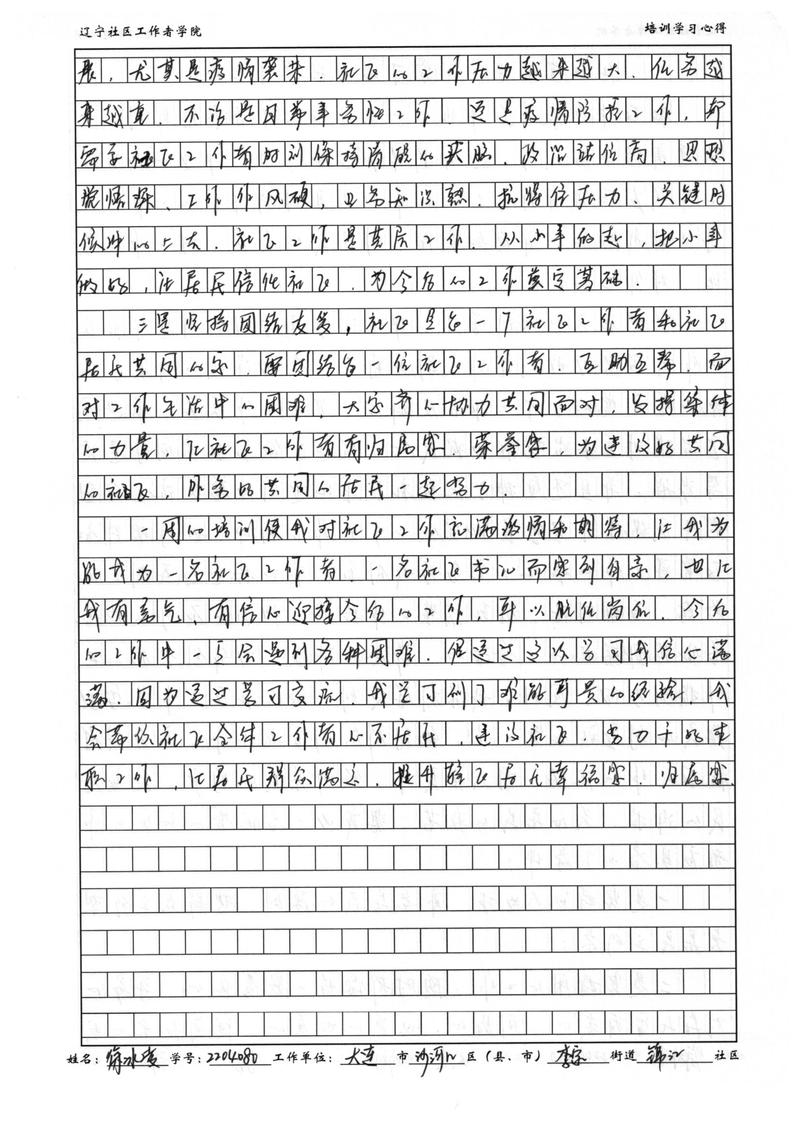 辽宁社区工作者学院 培训学习心得
展，尤其是疫情袭来，社区的工作压力越来越大，任务越
来越重，不论是日常事务性工作，还是疫情防控工作，都
需要社区工作者时刻保持清醒的头脑，政治站位高，思想
觉悟深，工作作风硬，业务知识熟，抗得住压力，关键时
候冲的上去，社区工作是基层工作，从小事做起，把小事
做好，让居民信任社区，为今后的工作奠定基础．
三是坚持团结友爱，社区是每一个社区工作者和社区
居民共同的家，要团结每一位社区工作者，互助互帮，面
对工作生活中的困难，大家齐心协力共同面对，发挥集体
的力量，让社区工作者有归属感，荣誉感，为建设好共同
的社区，服务好共同的居民一起努力．
一周的培训使我对社区工作充满激情和期待，让我为
能成为一名社区工作者，一名社区书记而感到自豪，也让
我有勇气，有信心迎接今后的工作，可以胜任岗位，今后
的工作中一定会遇到各种困难，但通过这次学习我信心满
满，因为通过学习交流，我学习到了难能可贵的经验，我
会带领社区全体工作者心系居民，建设社区，努力干好本
职工作，让居民群众满意，提升辖区居民幸福感，归属感．
姓名：徐冰 学号：2204080 工作单位：大连 市 沙河口 区（县、市） 李家 街道 锦江 社区